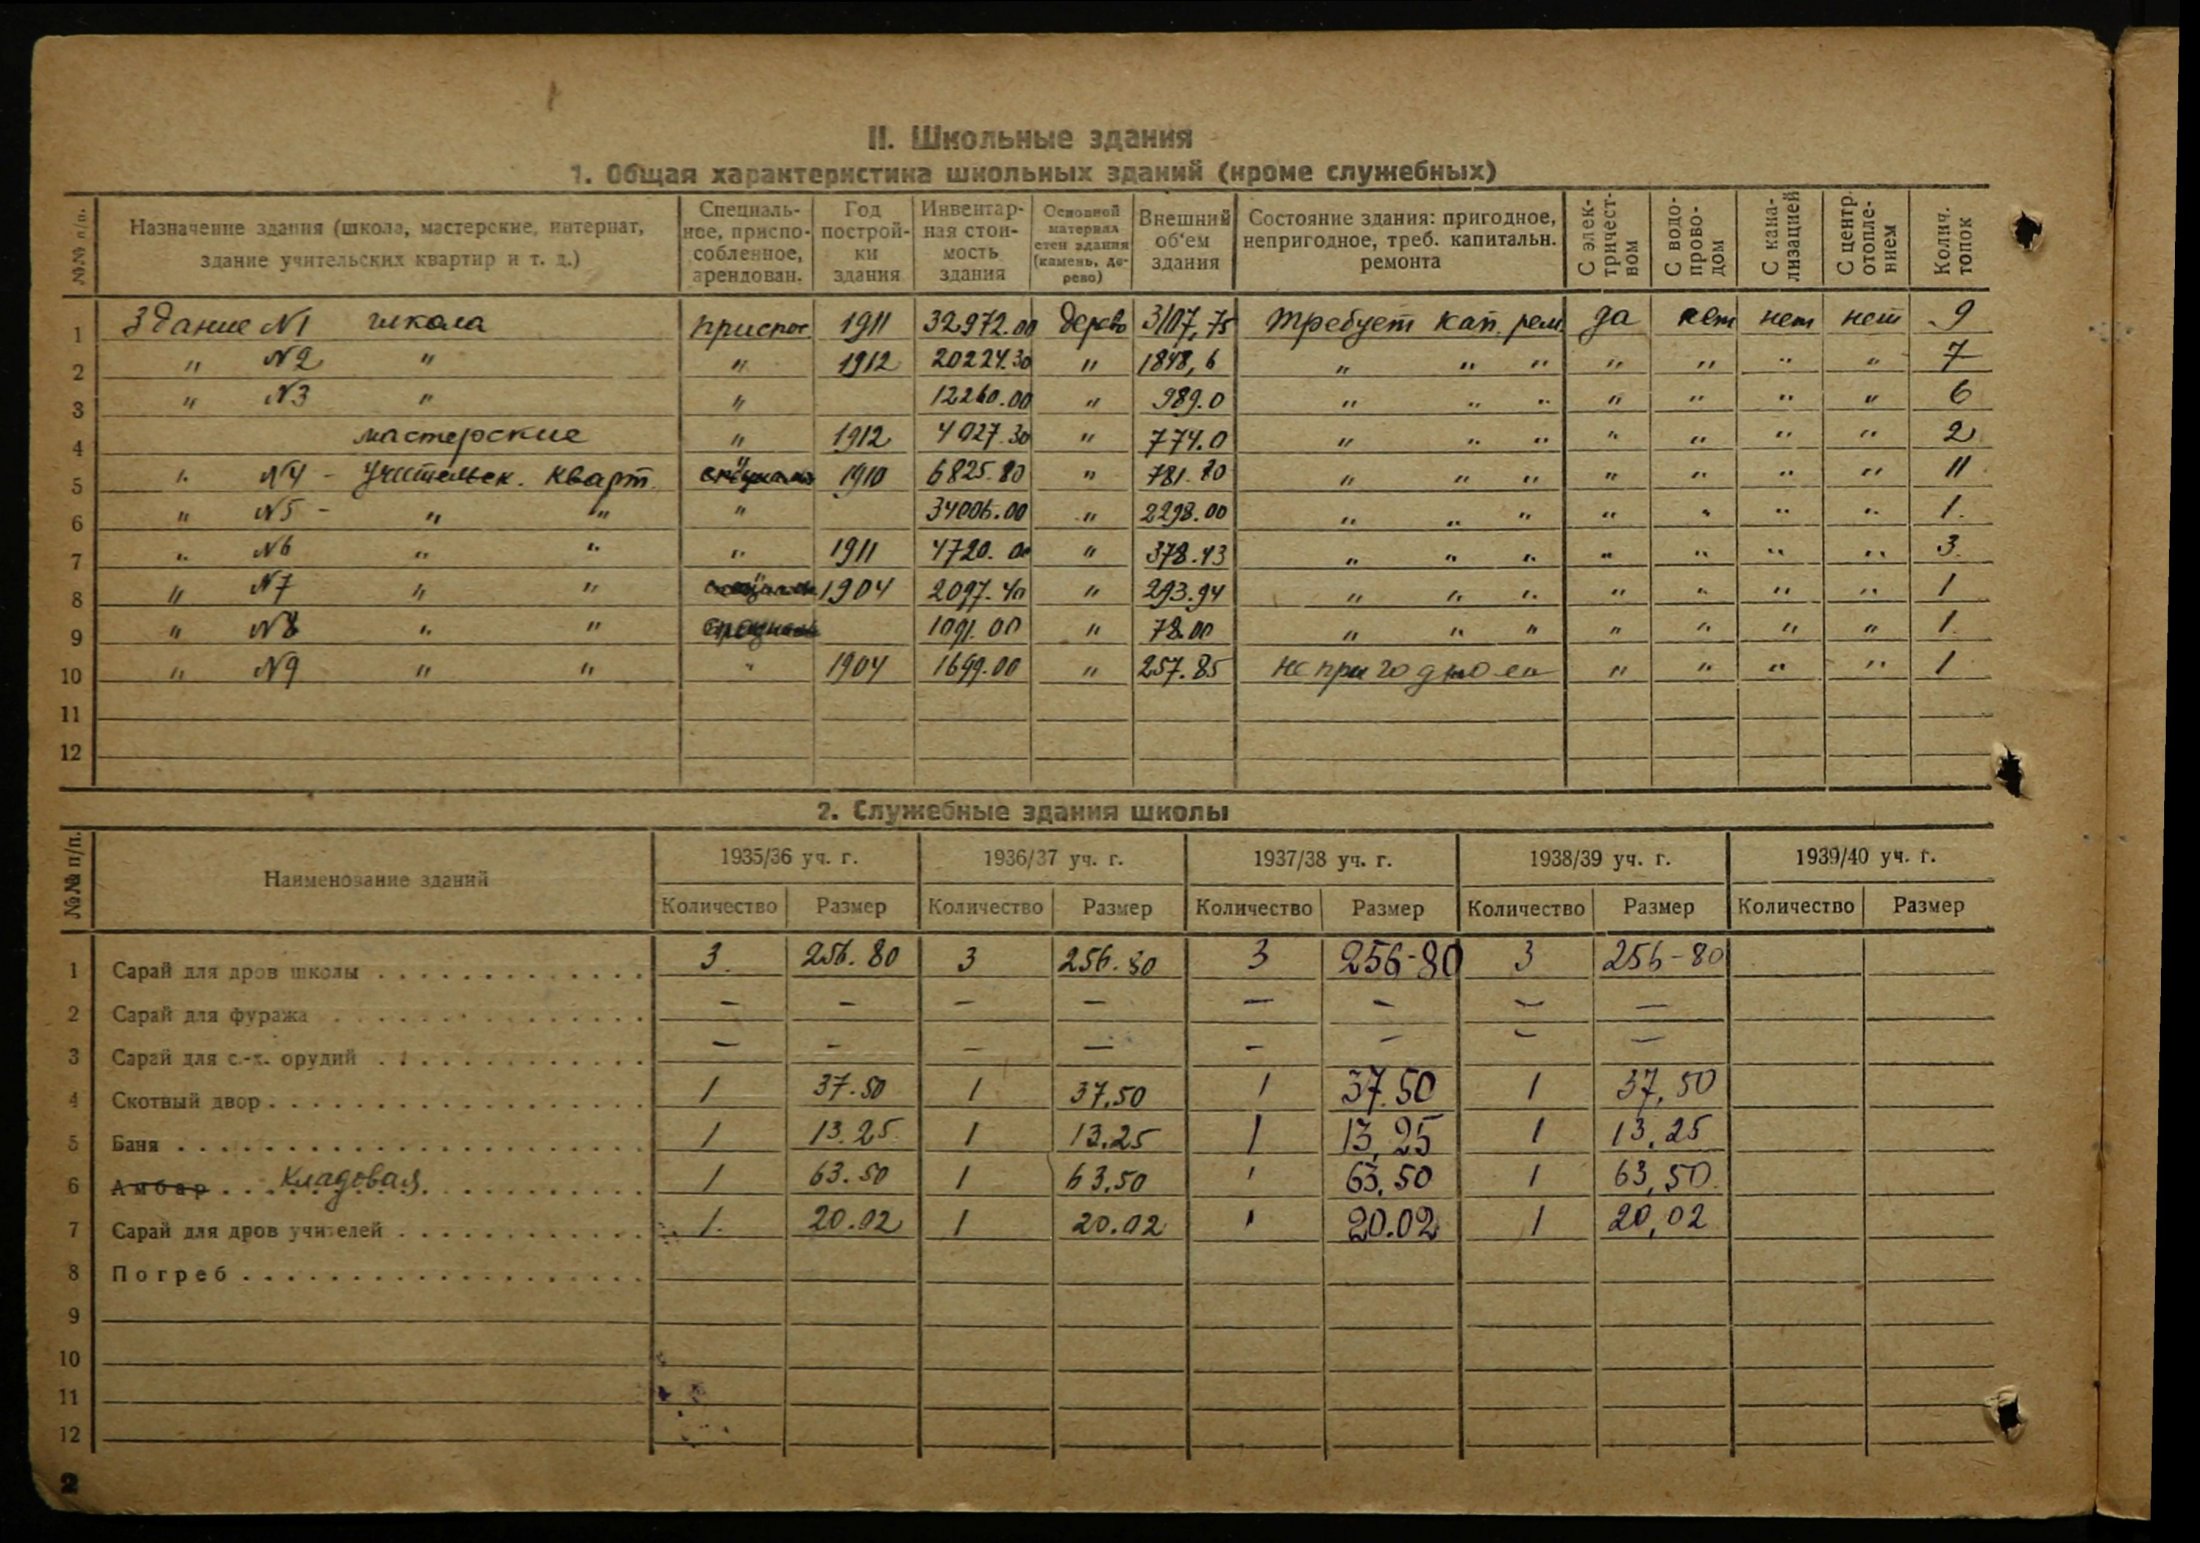 II. Школьные здания
1. Общая характеристика школьных зданий (кроме служебных)
№№ п/п. Назначение здания (школа, мастерские, интернат, здание учительских квартир и т. д.) Специальное, приспособленное, арендован. Год постройки здания Инвентарная стоимость здания Основной материал стен здания (камень, дерево) Внешний об'ем здания Состояние здания: пригодное, непригодное, треб. капитальн. ремонта С электричеством С водопроводом С канализацией С центр. отоплением Колич. топок
1 Здание №1 школа приспос. 1911 32972.00 дерево 3107,75 Требует кап. рем. да нет нет нет 9
2 " №2 " " 1912 20224.30 " 1848,6 " " " " " " " 7
3 " №3 " " 12260.00 " 989.0 " " " " " " " 6
4 мастерские " 1912 4027.30 " 774.0 " " " " " " " 2
5 " №4 - Учительск. кварт. " 1910 6825.80 " 781.80 " " " " " " " 11
6 " №5 - " " " 34006.00 " 2298.00 " " " " " " " 1.
7 " №6 " " " 1911 4720.00 " 378.43 " " " " " " " 3.
8 " №7 " " " 1904 2097.40 " 293.94 " " " " " " " 1
9 " №8 " " 1091.00 " 78.00 " " " " " " " 1.
10 " №9 " " " 1904 1699.00 " 257.85 " " " " 1
11
12
2. Служебные здания школы
№№ п/п. Наименование зданий 1935/36 уч. г. 1936/37 уч. г. 1937/38 уч. г. 1938/39 уч. г. 1939/40 уч. г.
Количество Размер Количество Размер Количество Размер Количество Размер Количество Размер
1 Сарай для дров школы 3. 256.80 3 256.80 3 256-80 3 256-80
2 Сарай для фуража — — — — — — — —
3 Сарай для с.-х. орудий — — — — — — — —
4 Скотный двор 1 37.50 1 37.50 1 37.50 1 37,50
5 Баня 1 13.25 1 13.25 1 13,25 1 13,25
6 Амбар Кладовая 1 63.50 1 63.50 1 63,50 1 63,50
7 Сарай для дров учителей 1. 20.02 1 20.02 1 20.02 1 20,02
8 Погреб
9
10
11
12
2